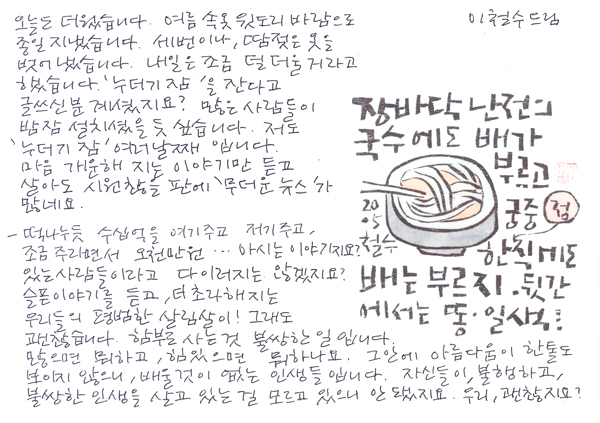 오늘도 더웠습니다. 여름 속옷 윗도리 바람으로
종일 지냈습니다. 세번이나, 땀젖은 옷을
벗어 냈습니다. 내일은 조금 덜 더울거라고
했습니다. '누더기 잠'을 잔다고
글쓰신분 계셨지요? 많은 사람들이
밤잠 설치셨을듯 싶습니다. 저도
'누더기 잠' 여러날째 입니다.
마음 개운해 지는 이야기만 듣고
살아도 시원찮을 판에 '무더운 뉴스'가
많네요.
- 떡나누듯 수십억을 여기주고 저기주고,
조금 주라면서 오천만원 ... 아시는 이야기지요?
있는 사람들이라고 다 이러지는 않겠지요?
슬픈이야기를 듣고, 더 초라해지는
우리들의 평범한 살림살이! 그래도
괜찮습니다. 함부로 사는것 불쌍한 일입니다.
많으면 뭐하고, 힘있으면 뭐하나요. 그안에 아름다움이 한톨도
보이지 않으니, 배울것이 없는 인생들 입니다. 자신들이, 불행하고,
불쌍한 인생을 살고 있는걸 모르고 있으니 안됐지요. 우리, 괜찮지요?
이철수드림
장바닥 난전의
국수에도 배가
부르고
궁중
한식에도
배는 부르지. 뒷간
에서는 똥. 일색!
2005
철수
점